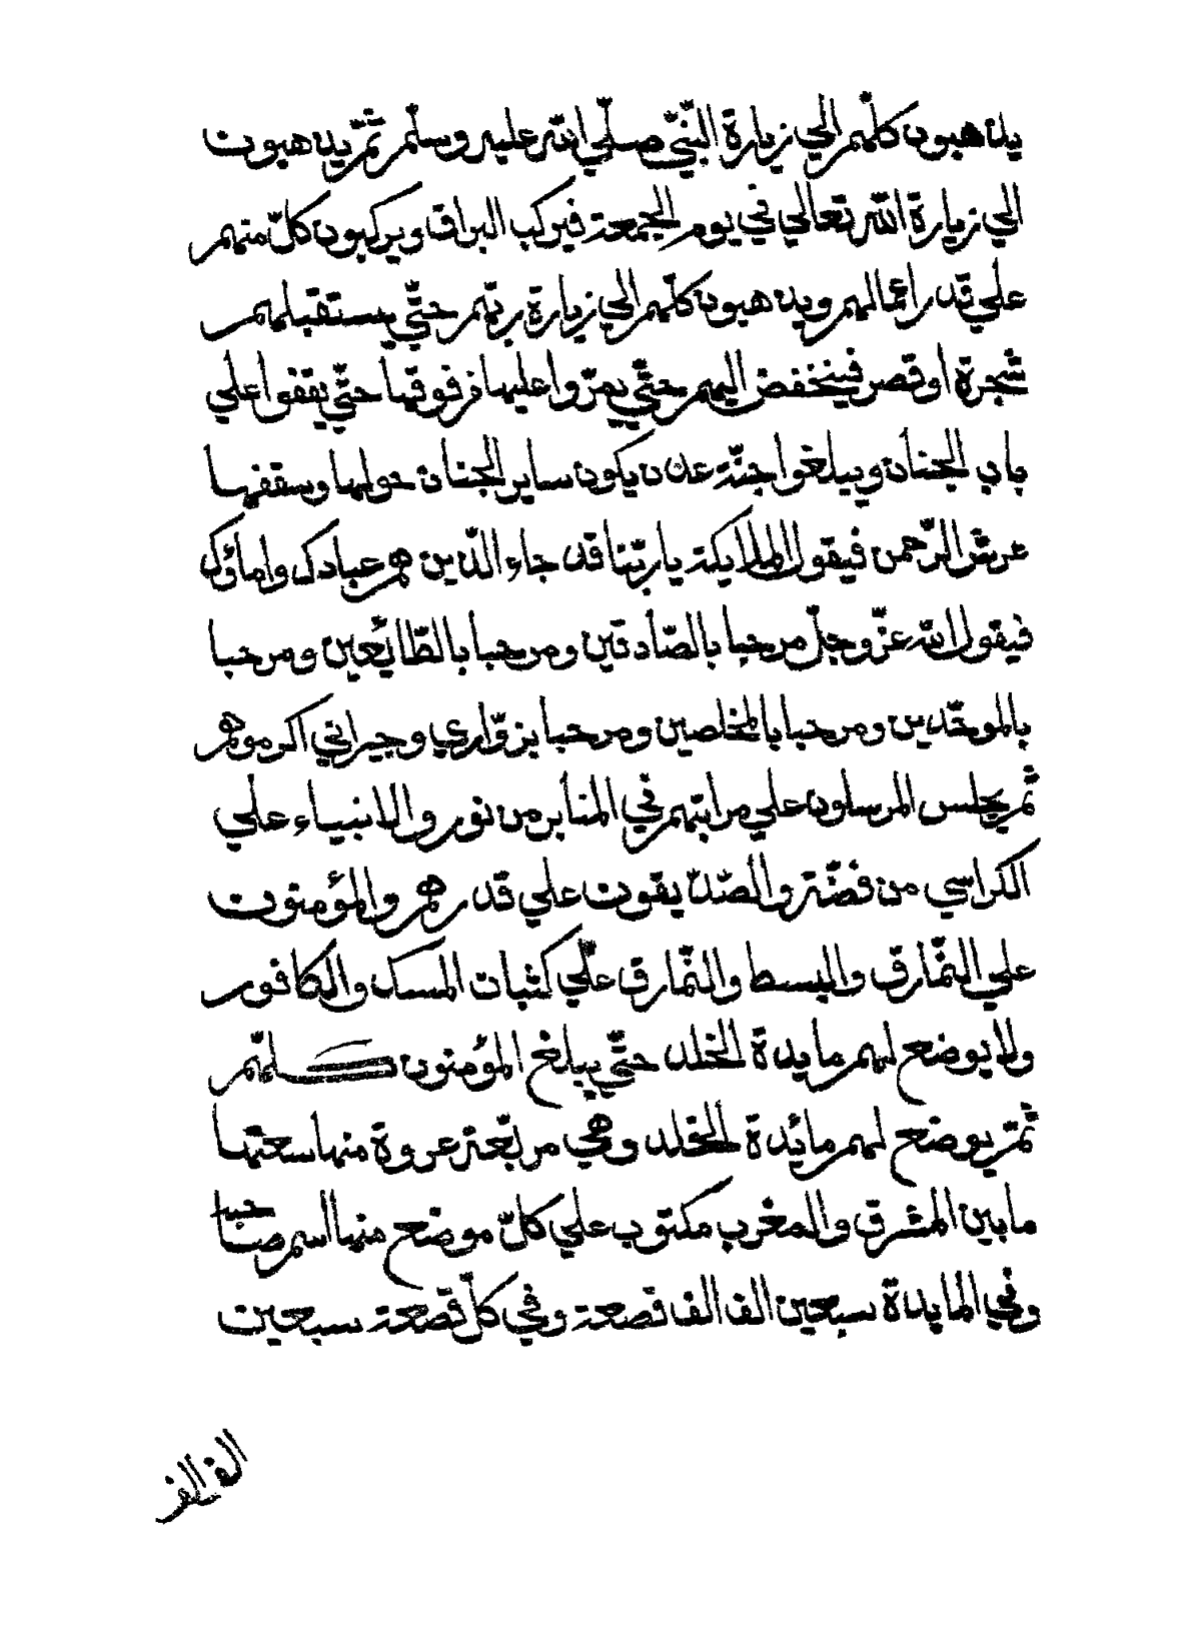 يذهبون كلّهم الي زيارة النّبيّ صلّي اللّه عليه وسلّم ثمّ يذهبون
الي زيارة اللّه تعالي في يوم الجمعة فيركب البراق ويركبون كلّ منهم
علي قدر اعمالهم ويذهبون كلّهم الي زيارة ربّهم حتّي يستقبلهم
شجرة او قصر فينخفض اليهم حتّي يمرّوا عليها فرفوقها حتّي يقفوا علي
باب الجنان ويبلغوا جنّة عدن يكون ساير الجنان حولها وسقفها
عرش الرّحمن فيقول الملايكة يا ربّنا قد جاء الّذين هم عبادك واماؤك
فيقول اللّه عزّ وجلّ مرحبا بالصّادقين ومرحبا بالطّائعين ومرحبا
بالموحّدين ومرحبا بالمخلصين ومرحبا بزوّاري وجيراني اكرموهم
ثم يجلس المرسلون علي مراتبهم في المنابر من نور والانبياء علي
الكراسي من فضّة والصّدّيقون علي قدرهم والمؤمنون
علي النّمارق والبسط والنّمارق علّي كثبات المسك والكافور
ولا يوضع لهم مايدة الخلد حتّي يبلغ المؤمنون كلهّم
ثمّ يوضع لهم مائدة الخلد وهي مربّعة عروة منها سعتها
ما بين المشرق والمغرب مكتوب علي كلّ موضع منها اسم صاحبها
وفي المايدة سبعين الف الف قصعة وفي كلّ قصعة سبعين
الف الف